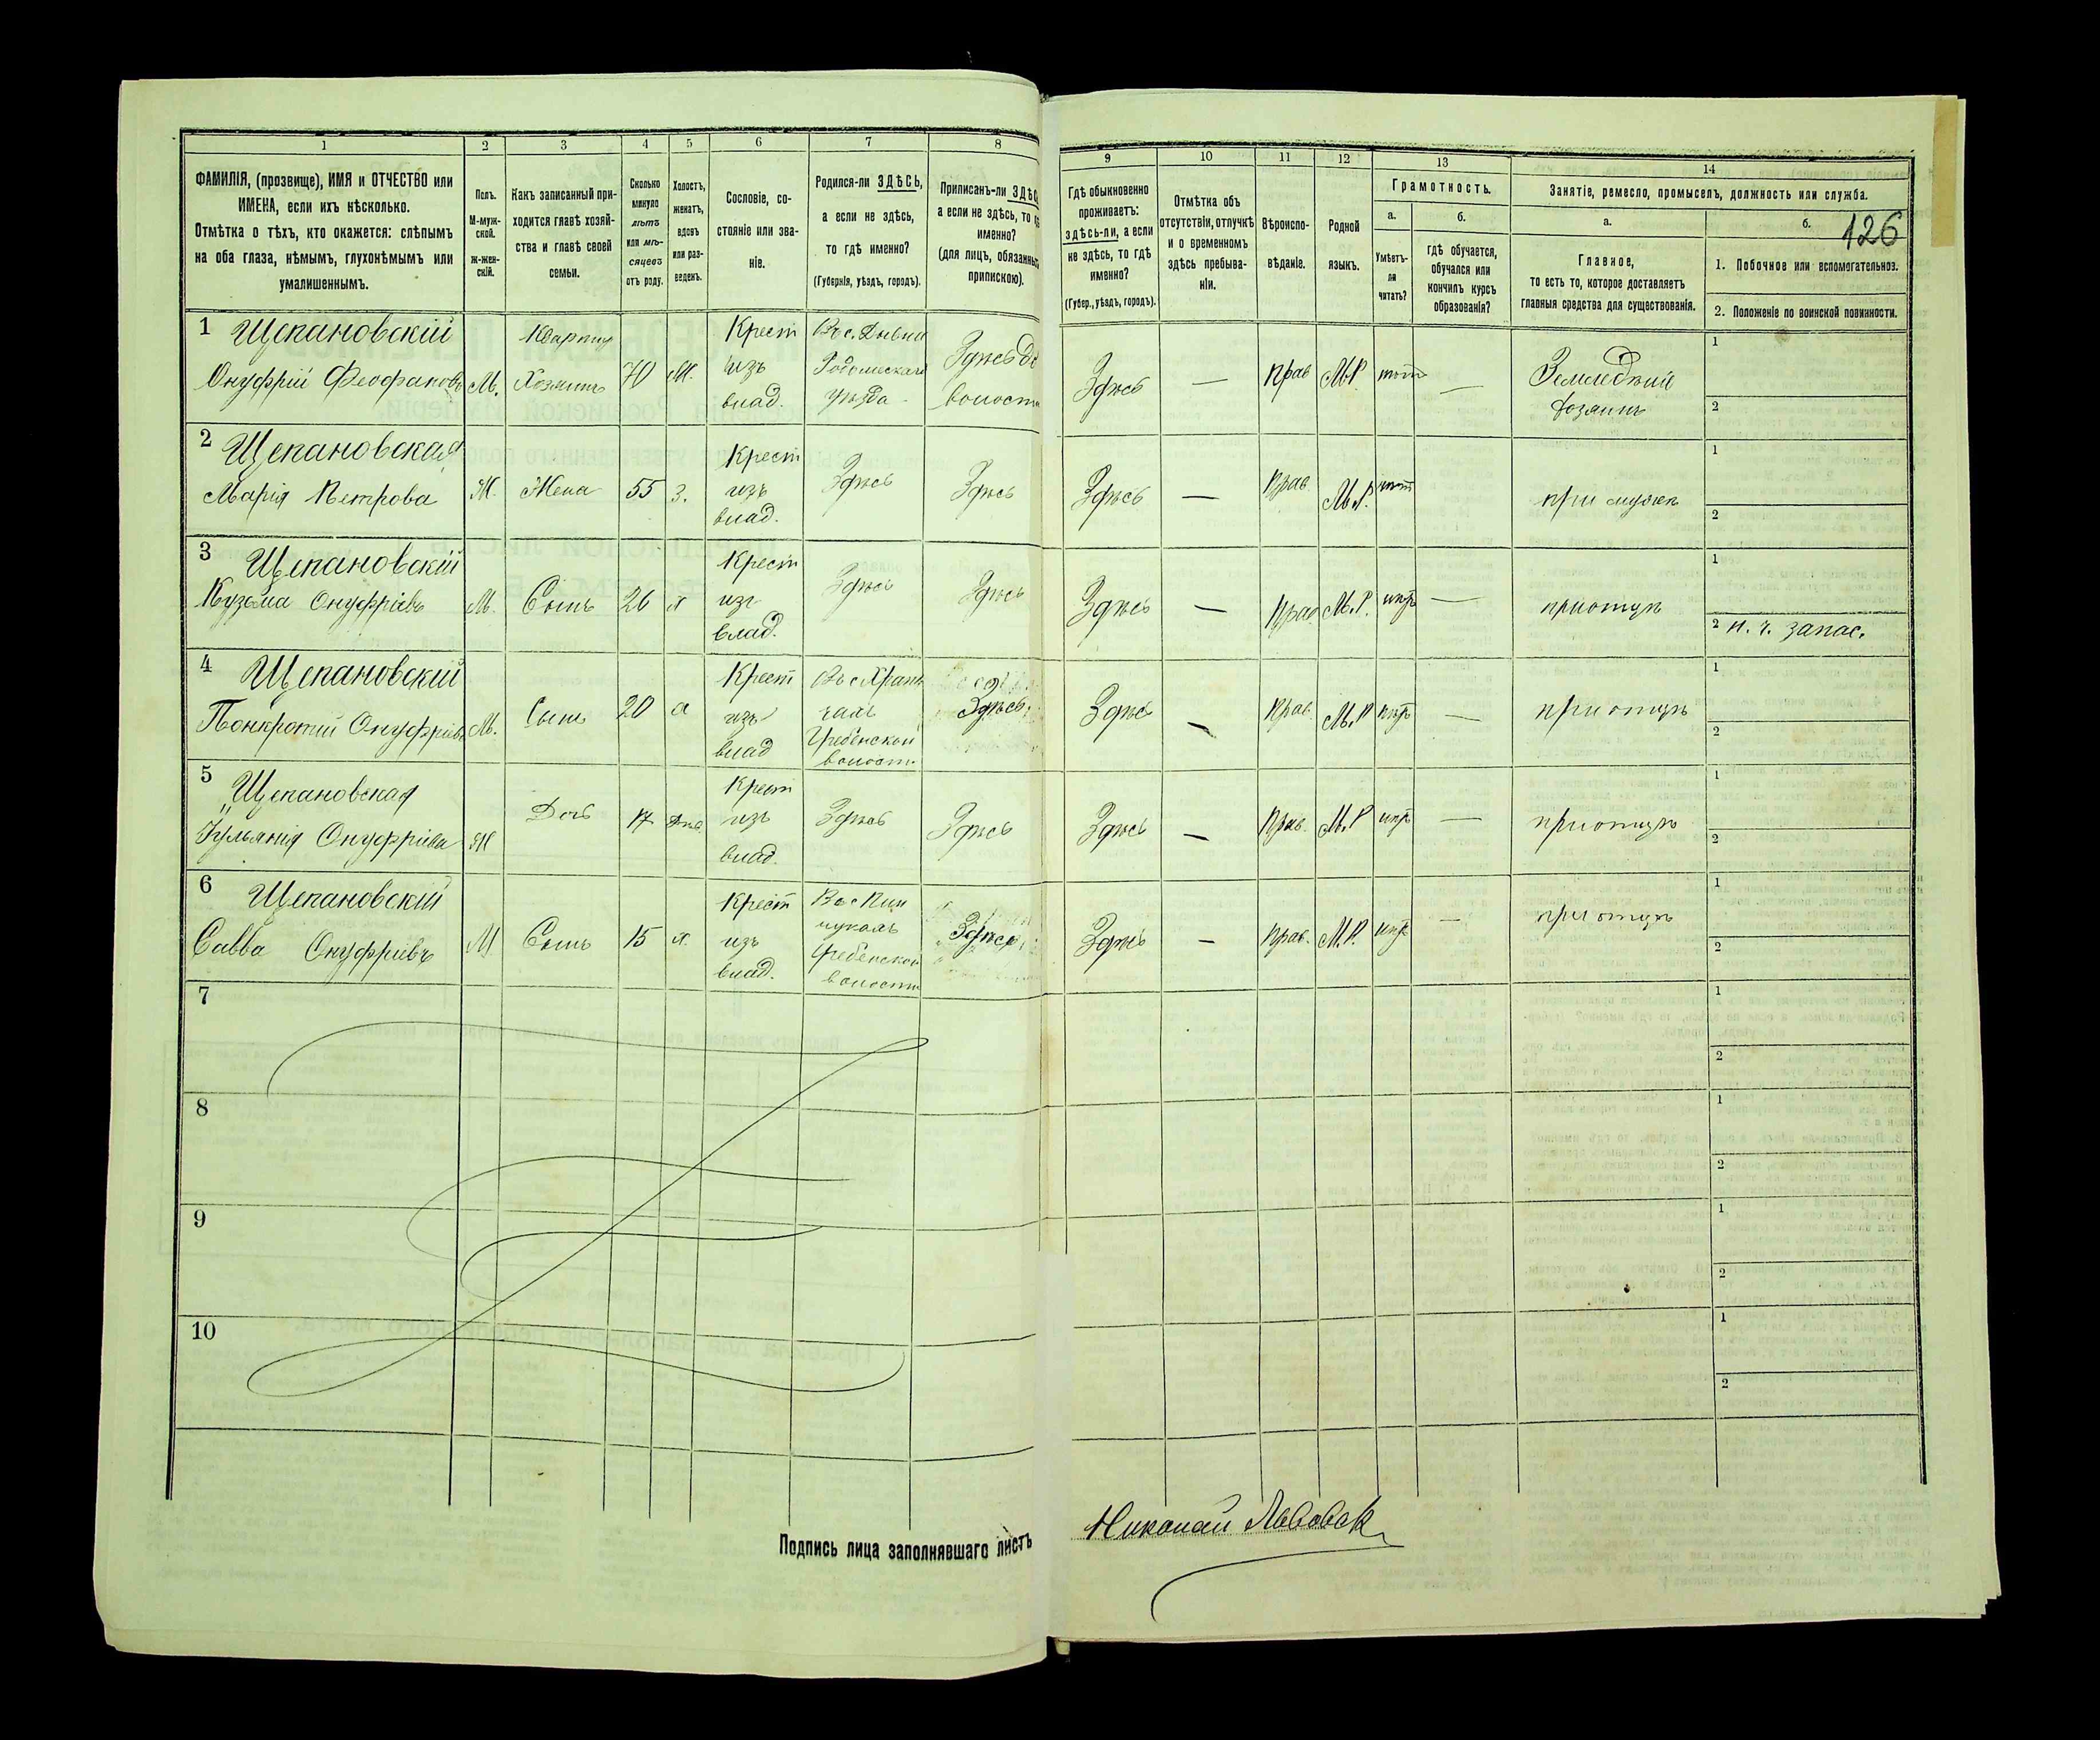 1 2 3 4 5 6 7 8
ФАМИЛІЯ, (прозвище), ИМЯ и ОТЧЕСТВО или
ИМЕНА, если ихъ нѣсколько.
Отмѣтка о тѣхъ, кто окажется: слѣпымъ
на оба глаза, нѣмымъ, глухонѣмымъ или
умалишеннымъ.
Полъ.
М-муж-
ской.
Ж-жен-
скій.
Какъ записанный при-
ходится главѣ хозяй-
ства и главѣ своей
семьи.
Сколько
минуло
лѣтъ
или мѣ-
сяцевъ
отъ роду.
Холостъ,
женатъ,
вдовъ
или раз-
веденъ.
Сословіе, со-
стояніе или зва-
ніе.
Родился-ли ЗДѢСЬ,
а если не здѣсь,
то гдѣ именно?
(Губернія, уѣздъ, городъ).
Приписанъ-ли
а если не здѣсь, то
именно?
(для лицъ,
припискою).
9 10 11 12 13 14
Гдѣ обыкновенно
проживаетъ:
здѣсь-ли, а если
не здѣсь, то гдѣ
именно?
(Губер., уѣздъ, городъ).
Отмѣтка объ
отсутствіи, отлучкѣ
и о временномъ
здѣсь пребыва-
ніи.
Вѣроиспо-
вѣданіе.
Родной
языкъ.
Грамотность.
а.
Умѣетъ-
ли
читать?
б.
Гдѣ обучается,
обучался или
кончилъ курсъ
образованія?
Занятіе, ремесло, промыселъ, должность или служба.
а.
Главное,
то есть то, которое доставляетъ
главныя средства для существованія.
б.
126
1. Побочное или вспомогательное.
2. Положеніе по воинской повинности.
1 Щепановскій
Онуфрій Феофановъ М. Хозяинъ 70 Крест изъ влад. уѣзда Здѣсь — прав М.Р. — хозяинъ 1 2
2 Щепановская
Марія Петрова Ж. Жена 55 З. Крест изъ влад. Здѣсь Здѣсь Здѣсь — Прав. М.Р. при мужѣ 1 2
3 Щепановскій
Кузьма Онуфріевъ М. Сынъ 26 х Крест изъ влад. Здѣсь Здѣсь Здѣсь — Прав М.Р. — при отцѣ 1 2 н. ч. запас.
4 Щепановскій
Онуфріевъ М. Сынъ 20 Крест изъ влад Гребенской волости Здѣсь Здѣсь — Прав. М.Р — при отцѣ 1 2
5 Щепановская
Іульянія Онуфріева Ж Дочь 17 Дѣв. Крест изъ влад. Здѣсь Здѣсь Здѣсь — Прав. М.Р — при отцѣ 1 2
6 Щепановскій
Савва Онуфріевъ М Сынъ 15 х. Крест изъ влад. Гребенской волости Здѣсь Здѣсь — Прав. М.Р. — при отцѣ 1 2
7 1 2
8 1 2
9 1 2
10 1 2
Подпись лица заполнявшаго листъ
Николай